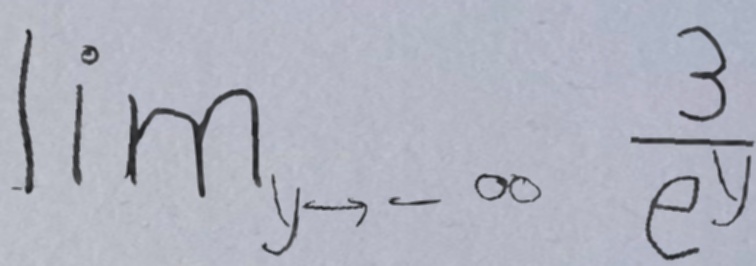 \lim_{y \to -\infty} \frac{3}{e^y}